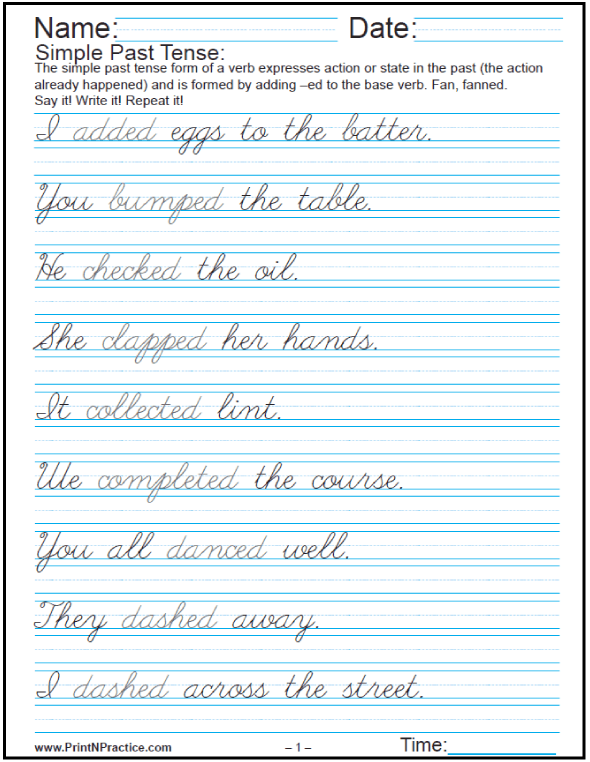 Name: Date:
Simple Past Tense:
The simple past tense form of a verb expresses action or state in the past (the action
already happened) and is formed by adding –ed to the base verb. Fan, fanned.
Say it! Write it! Repeat it!
I added eggs to the batter.
You bumped the table.
He checked the oil.
She clapped her hands.
It collected lint.
We completed the course.
You all danced well.
They dashed away.
I dashed across the street.
www.PrintNPractice.com – 1 – Time: